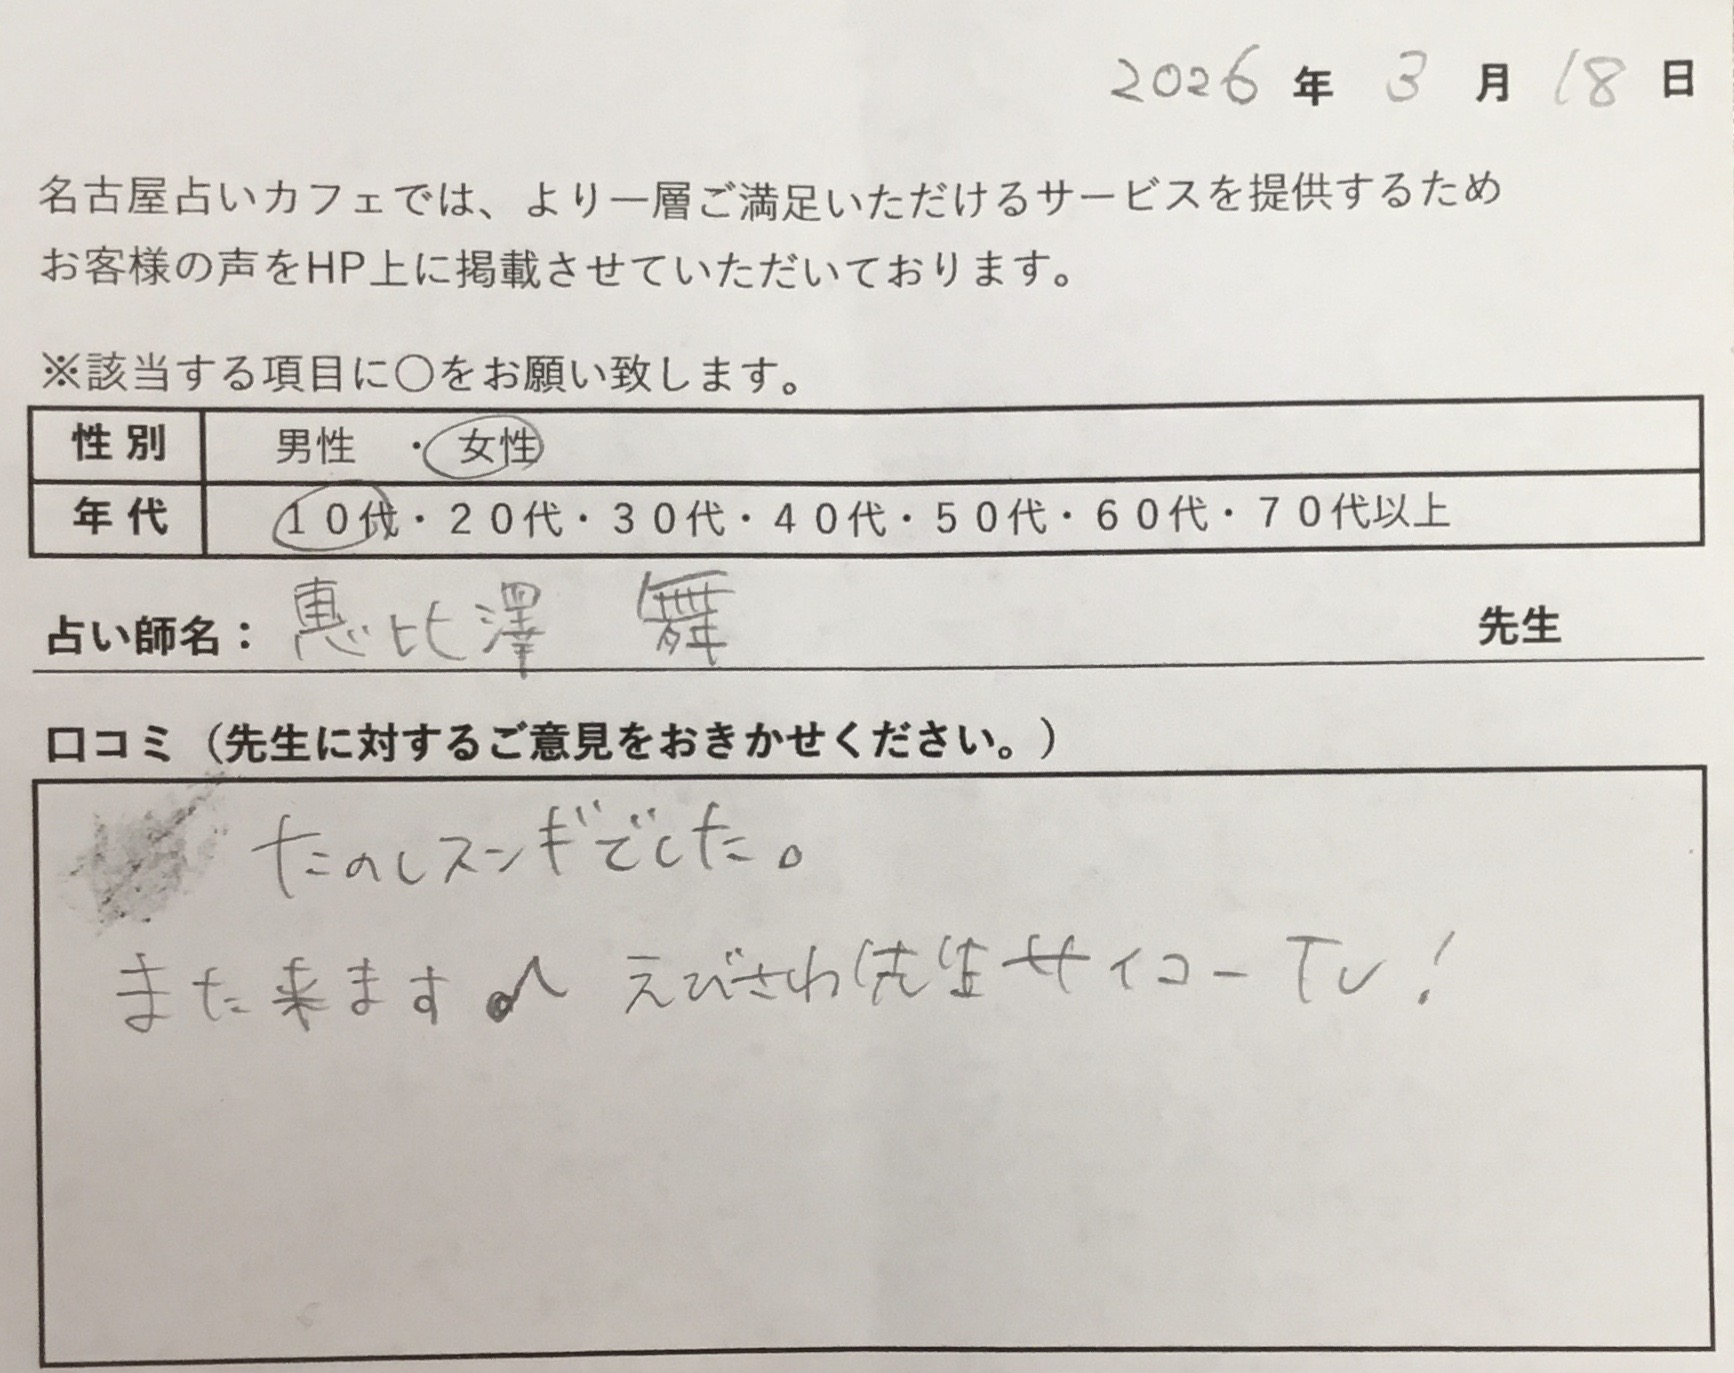 2026 年 3 月 18 日
名古屋占いカフェでは、より一層ご満足いただけるサービスを提供するため
お客様の声をHP上に掲載させていただいております。
※該当する項目に〇をお願い致します。
性別 男性 ・ 女性
年代 10代・20代・30代・40代・50代・60代・70代以上
占い師名： 恵比澤 舞 先生
口コミ（先生に対するご意見をおきかせください。）
たのしスンギでした。
また来ます♪ えびさわ先生サイコーTV!